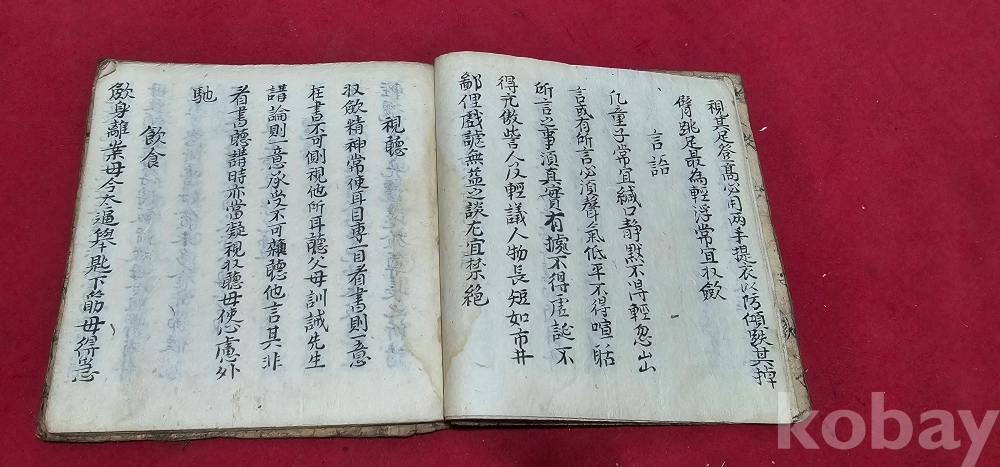 視其足登高必用兩手提衣以防傾跌其掉
臂跳足最為輕浮常宜収歛
言語
凡童子常宜緘口静默不得輕忽出
言或有所言必須聲氣低平不得喧聒
所言之事須真實有據不得虛誕亦不
得亢傲訾人及輕議人物長短如市井
鄙俚戲謔無益之談尤宜禁絶
視聽
収歛精神常使耳目專一目看書則一意
在書不可側視他所耳聽父母訓誡先生
講論則一意承受不可雜聽他言其非
看書聽講時亦當凝視収聽毋使心慮外
馳
飲食
歛身離案毋令太逼舉匙下筯毋得急
kobay